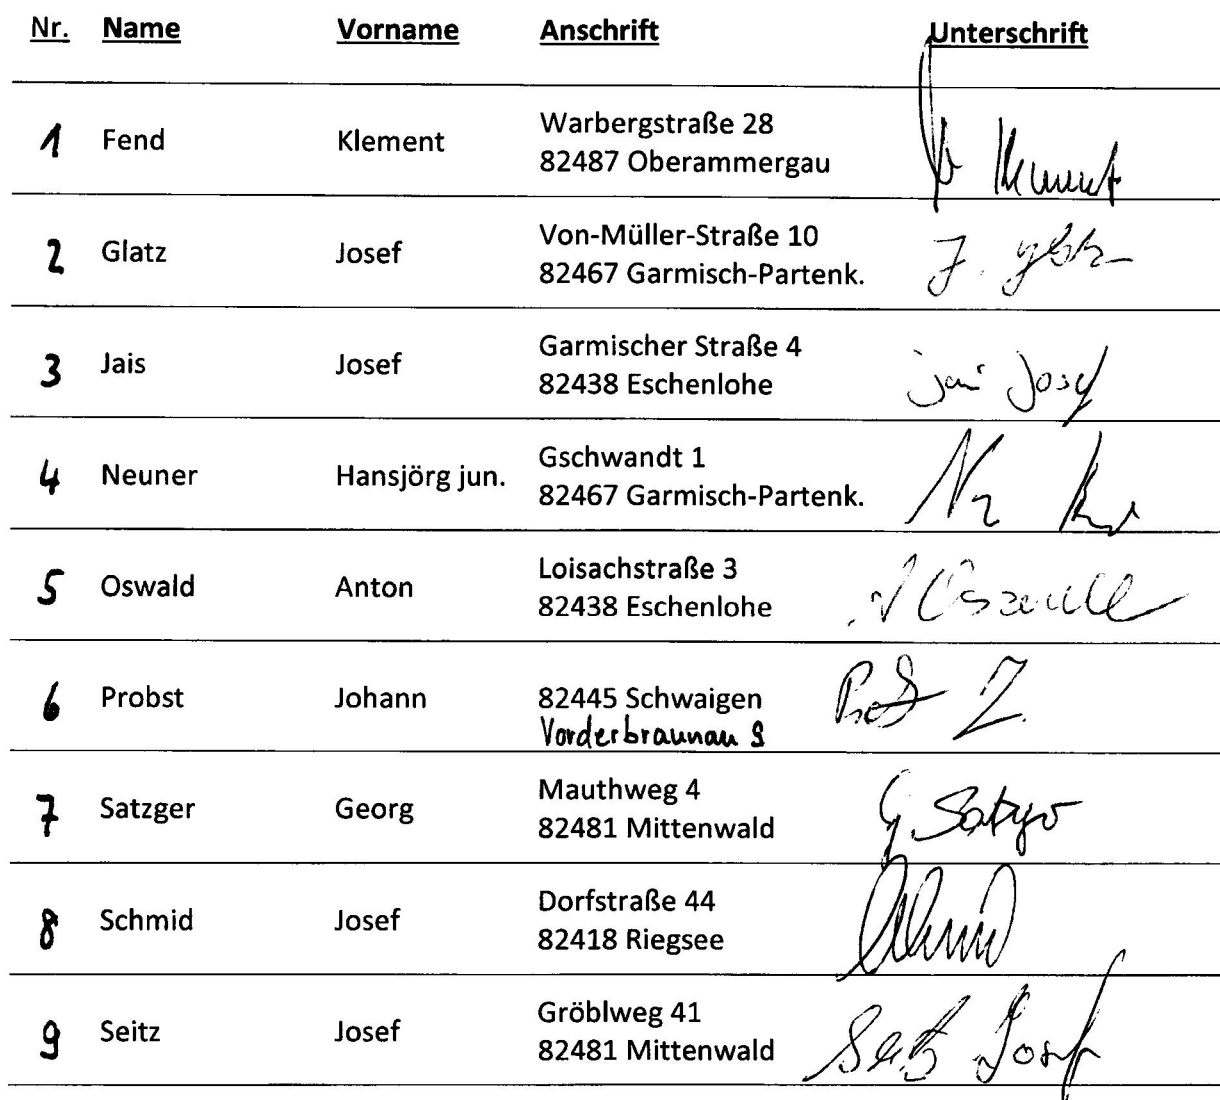 Nr. Name Vorname Anschrift Unterschrift
1 Fend Klement Warbergstraße 28
82487 Oberammergau
Klement
2 Glatz Josef Von-Müller-Straße 10
82467 Garmisch-Partenk.
J. Glatz
3 Jais Josef Garmischer Straße 4
82438 Eschenlohe
Jais Josef
4 Neuner Hansjörg jun. Gschwandt 1
82467 Garmisch-Partenk.
5 Oswald Anton Loisachstraße 3
82438 Eschenlohe
A Oswald
6 Probst Johann 82445 Schwaigen
Vorderbraunau 9
7 Satzger Georg Mauthweg 4
82481 Mittenwald
G. Satzger
8 Schmid Josef Dorfstraße 44
82418 Riegsee
Schmid
9 Seitz Josef Gröblweg 41
82481 Mittenwald
Seitz Josef